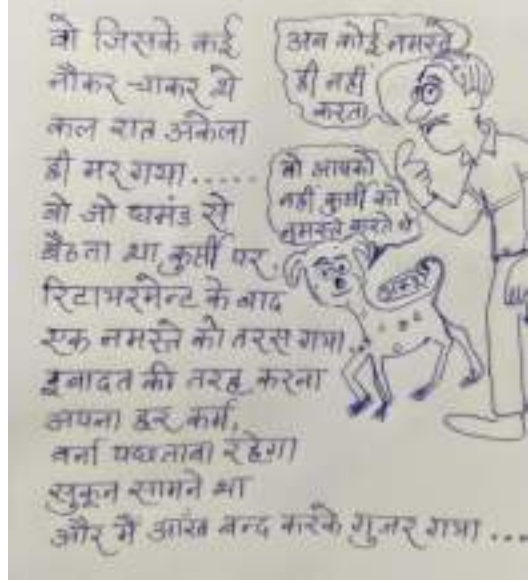 वो जिसके कई
नौकर-चाकर थे
कल रात अकेला
ही मर गया.....
वो जो घमंड से
बैठता था कुर्सी पर,
रिटायरमेन्ट के बाद
एक नमस्ते को तरस गया..
इबादत की तरह करना
अपना हर कर्म,
वर्ना पछतावा रहेगा
सुकून सामने था
और मैं आंख बन्द करके गुजर गया ....
अब कोई नमस्ते
ही नहीं
करता
वो आपको
नहीं कुर्सी को
नमस्ते करते थे